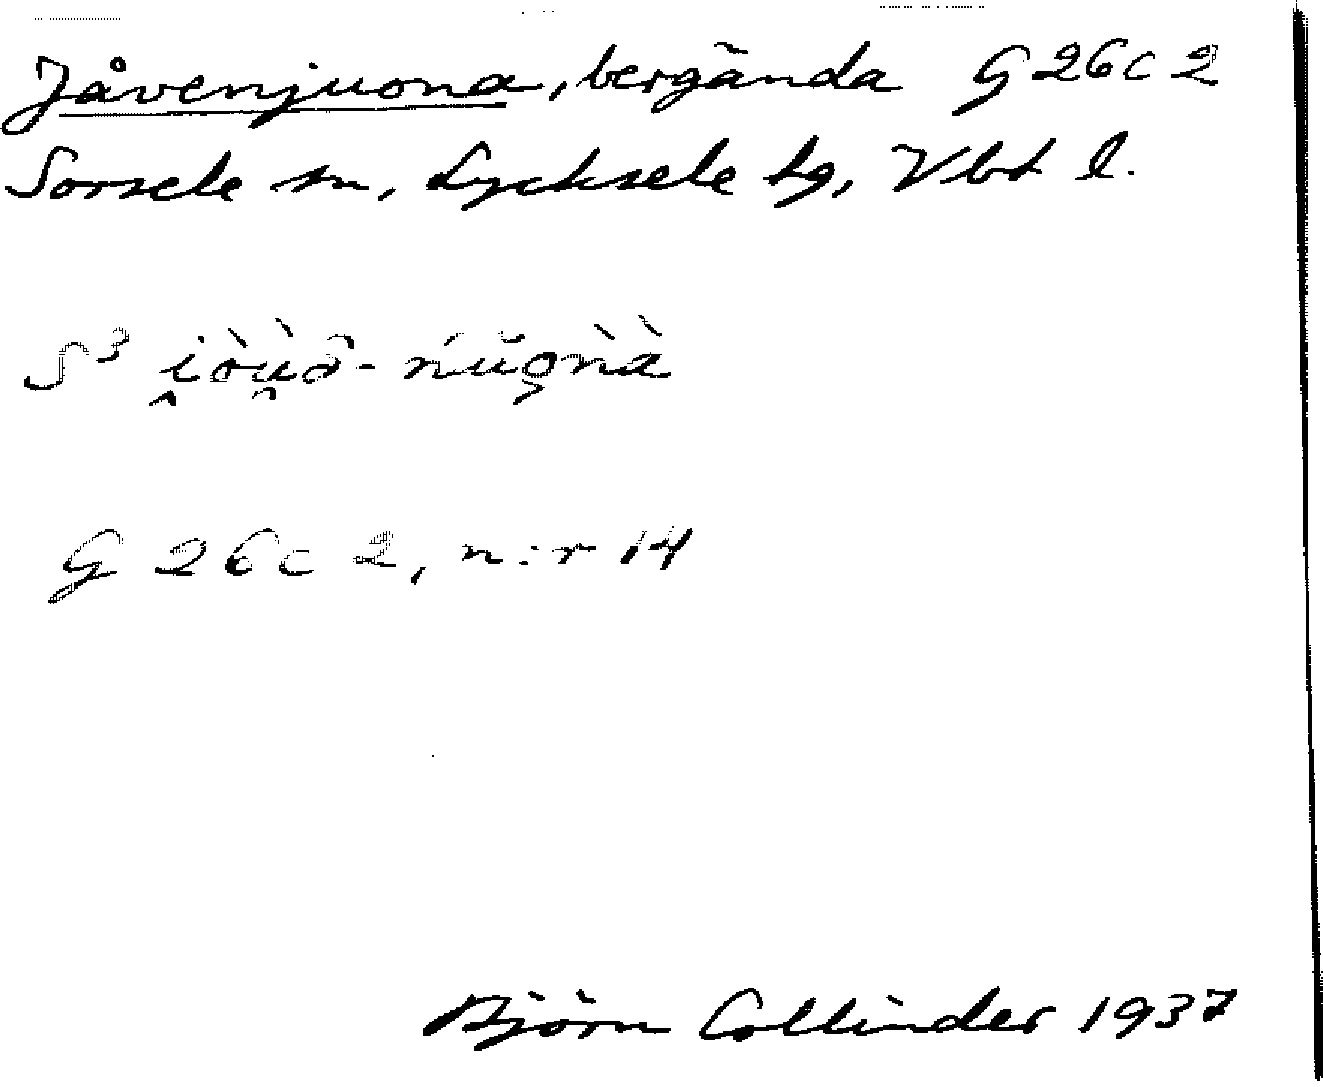 Jåvenjuona, bergända G 26 c 2
Sorsele sn, Lycksele lg, Vbt l.
S³ i̭òù̯ə̑-ńŭo̧ǹà
G 26 c 2, n:r 14
Björn Collinder 1937